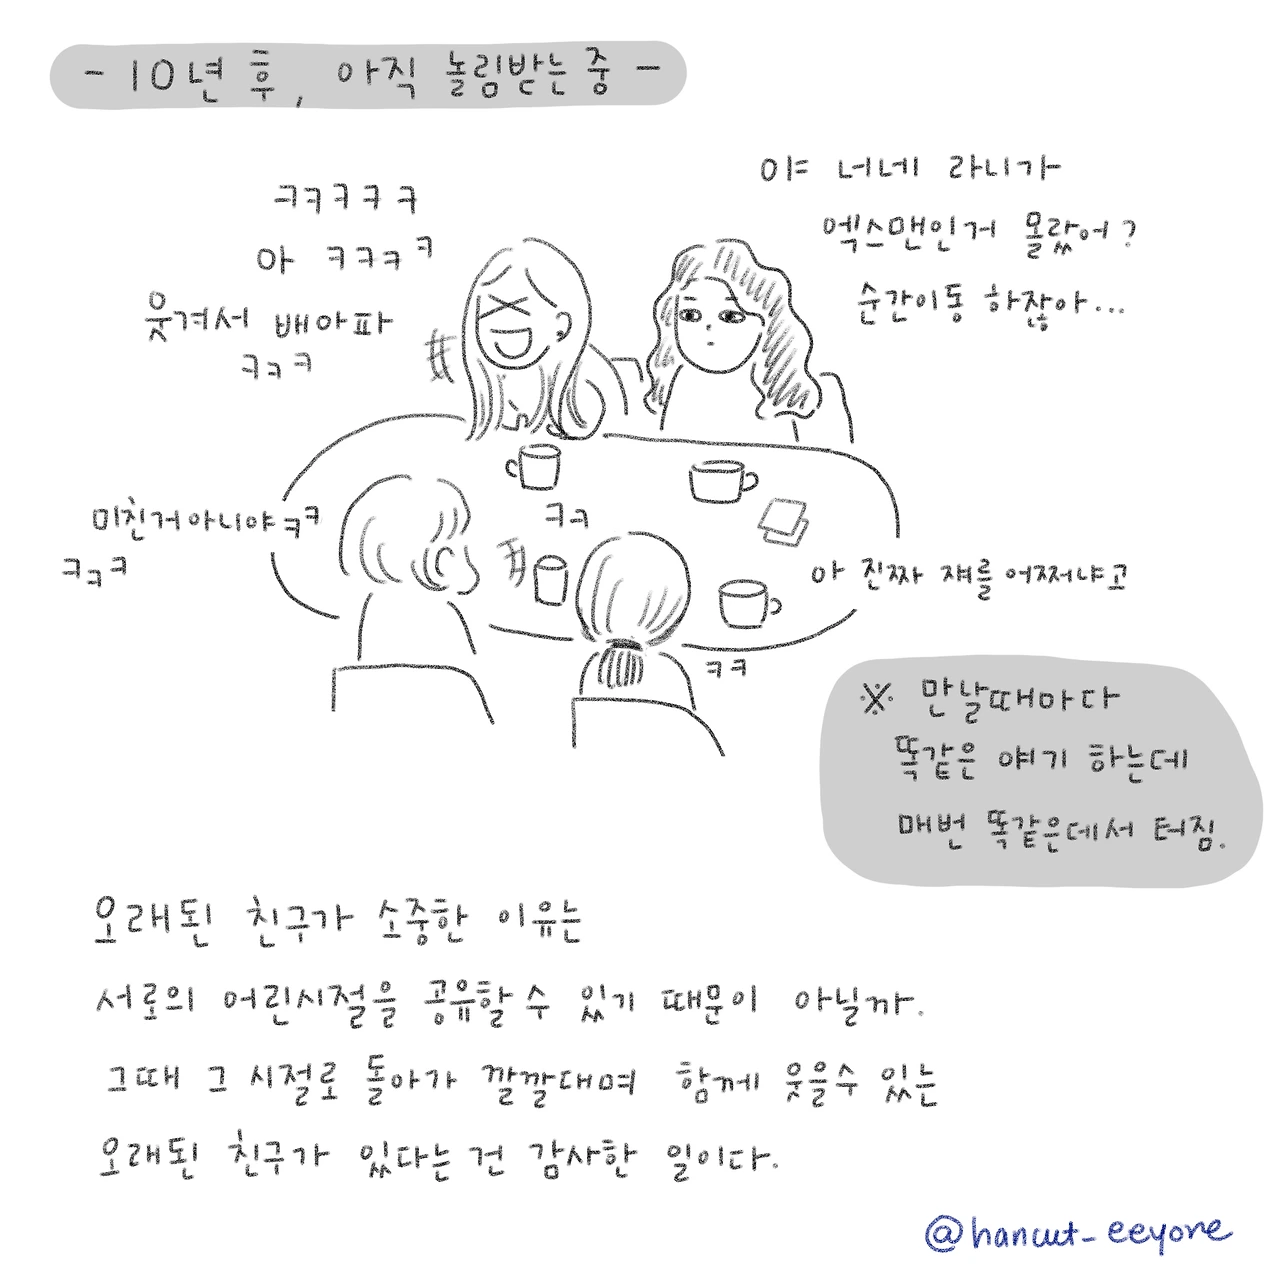 - 10년 후, 아직 놀림받는 중 -
ㅋㅋㅋㅋㅋ
아 ㅋㅋㅋㅋ
웃겨서 배아파
ㅋㅋㅋ
야 너네 라니가
엑스맨인거 몰랐어?
순간이동 하잖아...
미친거아니야ㅋㅋ
ㅋㅋㅋ
ㅋㅋ
아 진짜 쟤를 어쩌냐고
ㅋㅋ
※ 만날때마다
똑같은 얘기 하는데
매번 똑같은데서 터짐.
오래된 친구가 소중한 이유는
서로의 어린시절을 공유할 수 있기 때문이 아닐까.
그때 그 시절로 돌아가 깔깔대며 함께 웃을수 있는
오래된 친구가 있다는 건 감사한 일이다.
@hancut_eeyore